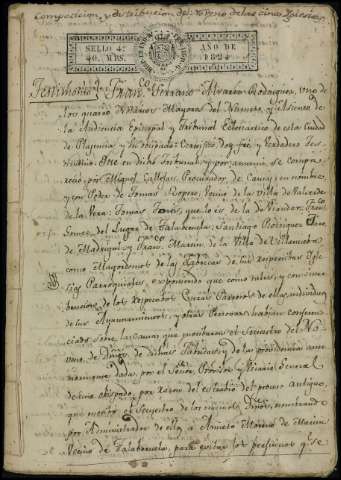 Composicion, y distribucion del de las cinco Iglesias
SELLO 4º
40. MRS.
AÑO DE
1824
Testimonio Fran.co Serrano Alvarez Rodriguez, uno de
los quatro Notarios Mayores del Numero, y Asiento de
la Audiencia Episcopal y Tribunal Eclesiastico de esta ciudad
de Plasencia y su Obispado: Certifico doy fee, y verdadero tes-
timonio: Que en dicho Tribunal, y por ante mi se compa-
recio por Miguel Procurador de Causas en nombre,
y con Poder de Tomas Vecino de la Villa de Valverde
de la Vera: Tomas que lo es de la de Viandar: Fran.co
Gomez del Lugar de Talabeuela, Santiago Rodriguez
de Madrigal y Fran.co Martin de la Villa de Villanueba
como Mayordomos de las Fabricas de sus respectivas Igle-
sias Parroquiales, exponiendo que como tales, y con
de los respectivos Curas Parrocos de ellas, individuos
de sus Ayuntamientos, y otras Personas habian conferen-
ciado sobre la causa que el Secuestro del No-
veno de Diezmos de dichas Fabricas, y de las providencias
dadas por el Señor Provisor y Vicario General
de este obispado, por razon del estado del proceso antiguo,
que el Secuestro de los nombrando
por Administrador de ellos a Aniceto Martin de
Vecino de Talabeuela, para evitar los perjuicios q.e se